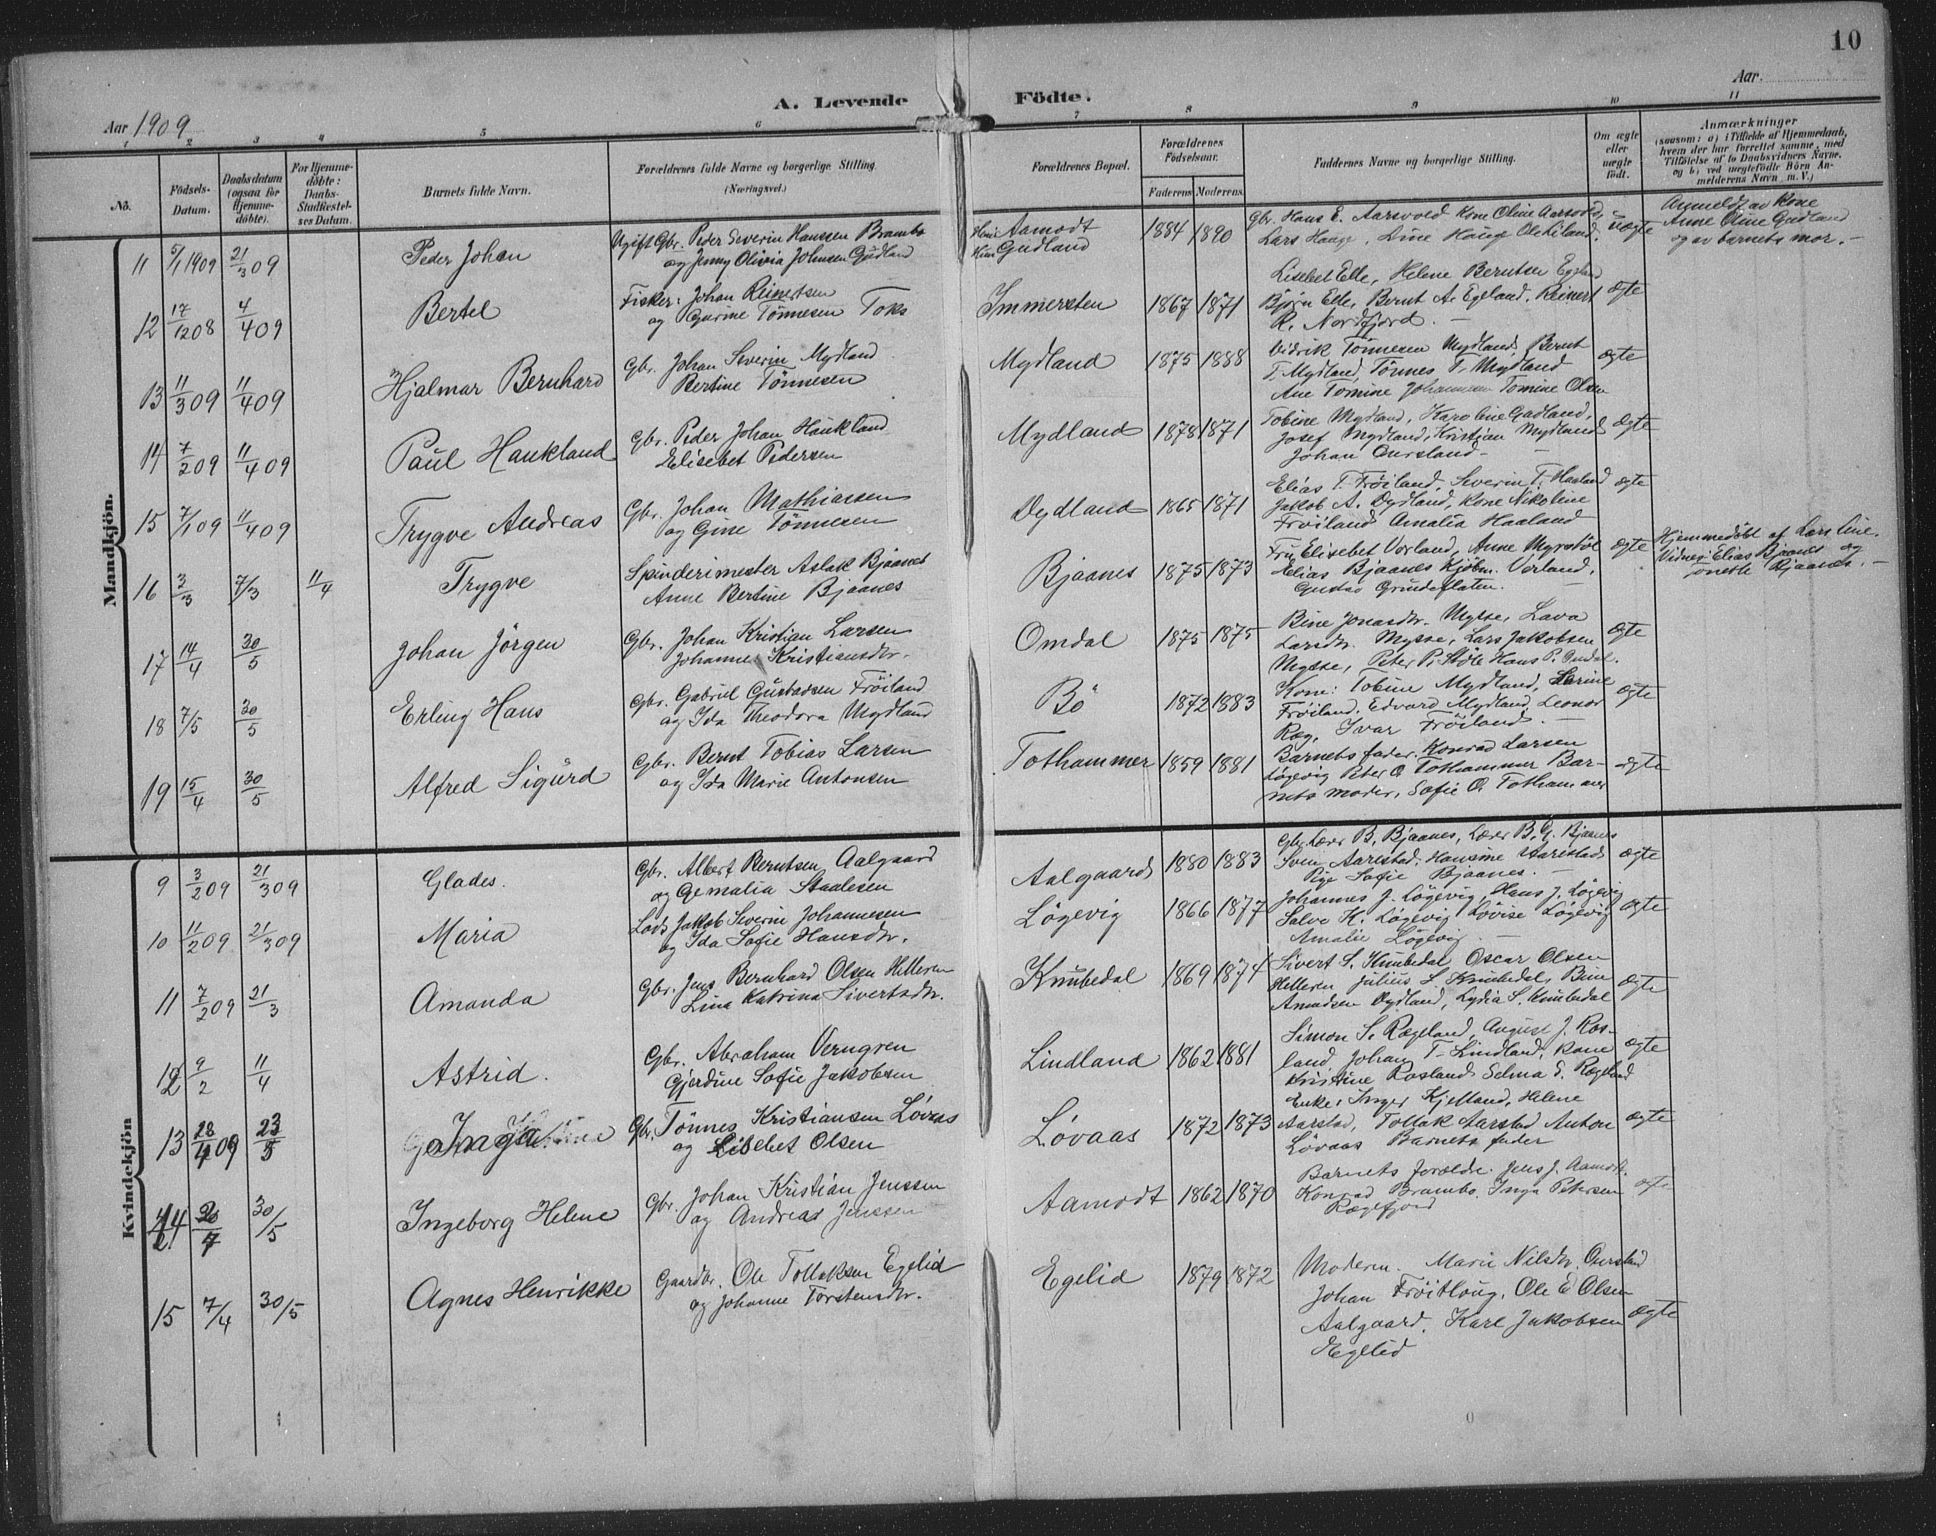 10
A. Levende Födte.
Aar 1909
Aar.
1 2 3 4 5 6 7 8 9 10 11
No.
Födsels-Datum.
Daabsdatum (ogsaa for Hjemme-döbte).
For Hjemme-döbte: Daabs-Stadfæstel-ses Datum.
Barnets fulde Navn.
Forældrenes fulde Navne og borgerlige Stilling. (Næringsvei.)
Forældrenes Bopæl.
Forældrenes Födselsaar.
Faderens Moderens
Faddernes Navne og borgerlige Stilling.
Om ægte eller uægte födt.
Anmærkninger
(saasom: a) i Tilfælde af Hjemmedaab, hvem der har forrettet samme, med Tilföielse af to Daabsvidners Navne, og b) ved uægtefödte Börn An-melderens Navn m. V.)
Mandkjön.
11 5/1 1909 21/3 09 Peder Johan
Ugift Gbr. Peder Severin Hanssen Brambo
og Jenny Olivia Johnsen Gudland
Aamodt
Gudland
1884 1890
Gbr. Hans E. Aarsvold Kone Oline Aarsvold,
Lars Hauge, Ane Hauge Ole Kiland.
uægte
Anmeldt av kone
Anne Oline Gudland
og av barnets mor. -
12 17/12 08 4/4 09 Bertel
Fisker: Johan Reinertsen
og Gurine Tönnesen Toks
Immersten 1867 1871
Lisebet Elle, Helene Berntsen Egeland
Björn Elle, Bernt A. Egeland, Reinert
R. Nordfjord. -
ægte
13 11/3 09 11/4 09 Hjalmar Bernhard
Gbr. Johan Severin Mydland
Bertine Tönnesen
Mydland 1875 1888
Didrik Tönnesen Mydland, Bernt
T. Mydland, Tönnes T. Mydland
Ane Tomine Johannesen Tomine Olsen
ægte
14 7/2 09 11/4 09 Paul Haukland
Gbr. Peder Johan Haukland
Elisebet Pedersen
Mydland 1878 1871
Tobine Mydland, Karoline Gudland,
Josef Mydland, Kristian Mydland
Johan Oursland -
ægte
15 7/1 09 11/4 09 Trygve Andreas
Gbr. Johan Mathiassen
og Gine Tönnesen
Dydland 1865 1871
Elias T. Fröiland, Severin T. Haaland
Jakob A. Dydland, Kone Nikoline
Fröiland Amalia Haaland
ægte
16 3/3 7/3 11/4 Trygve
Spinderimester Aslak Bjaanes
Anne Bertine Bjaanes
Bjaanes 1875 1873
Fru Elisebet Vorland, Anne Myrstöl
Elias Bjaanes Kjöbm. Vorland,
Gustav Grundeflaten.
ægte
Hjemmedöbt af Lars Line.
Vidner: Elias Bjaanes og
Bjaanes. -
17 14/4 30/5 Johan Jörgen
Gbr. Johan Kristian Larsen
Johanne Kristiansdtr.
Omdal 1875 1875
Bine Jonasdtr. Mysse, Lava
Larsdtr. Mysse, Lars Jakobsen
Mysse, Peter P. Stöle Hans P. Omdal.
ægte
18 7/5 30/5 Erling Hans
Gbr. Gabriel Gustavsen Fröiland
og Ida Theodora Mydland
Bö 1872 1883
Kone: Tobine Mydland, Serine
Fröiland, Edvard Mydland, Leonor
Ræg, Ivar Fröiland. -
ægte
19 15/4 30/5 Alfred Sigurd
Gbr. Bernt Tobias Larsen
og Ida Marie Antonsen
Tothammer 1859 1881
Barnets fader, Konrad Larsen
Lögevig Peter O. Tothammer Bar-
nets moder, Sofie O. Tothammer
ægte
Kvindekjön
9 3/2 09 21/3 09 Glades.
Gbr. Albert Berntsen Aalgaard
og Gemalia Staalesen
Aalgaard 1880 1883
Lærer B. Bjaanes, Lærer B. G. Bjaanes
Sven Aarstad, Hansine Aarstad
Pige Sofie Bjaanes. -
ægte
10 11/2 09 21/3 09 Maria
Lods Jakob Severin Johannesen
og Ida Sofie Hansdtr.
Lögevig 1866 1877
Johannes J. Lögevig, Hans J. Lögevig
Salve K. Lögevig Lovise Lögevig
Amalie Lögevig
ægte
11 7/2 09 21/3 Amanda
Gbr. Jens Bernhard Olsen Helleren
Lina Katrina Sivertsdtr.
Knubedal 1869 1874
Sivert S. Knubedal Oscar Olsen
Helleren Julius S. Knubedal, Bine
Amadsen Dydland, Lydia S. Knubedal
ægte
12 9/2 11/4 Astrid.
Gbr. Abraham Verngren
Gjerdine Sofie Jakobsen
Lindland 1862 1881
Simon S. Rægeland, August J. Ros-
land, Johan T. Lindland, Kone
Kristine Rosland Selma S. Rægeland
ægte
13 28/4 09 23/5 Inga
Gbr. Tönnes Kristiansen Lövaas
og Lisebet Olsen
Lövaas 1872 1873
Enke: Inger Kjelland, Helene
Aarstad, Tollak Aarstad Anton
Lövaas Barnets fader
ægte
14 30/5 Ingeborg Helene
Gbr. Johan Kristian Jenssen
og Andrea Jenssen
Aamodt 1862 1870
Barnets forældre. Jens J. Aamodt.
Konrad Brambo. Inga Petersen
Rægefjord
ægte
15 7/4 30/5 Agnes Henrikke
Gaardbr. Ole Tollaksen Egelid
og Johanne Torstensdtr.
Egelid 1879 1872
Moderen. Marie Nilsdtr. Oursland
Johan Fröitlaug, Ole E Olsen
Aalgaard, Karl Jakobsen
Egelid
ægte